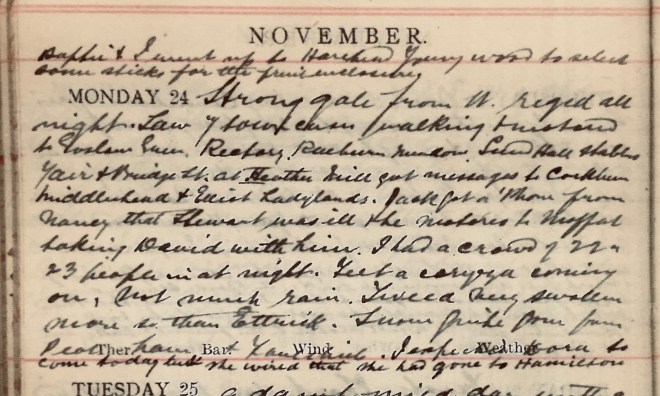 NOVEMBER.
& I went up to Harehead Young wood to select
some sticks for the fruit enclosure
MONDAY 24 Strong gale from W. raged all
night. Saw 7 town cases walking & motored
to Ewen. Rectory, Raeburn Meadow Hall Stables
Yair & Bridge St. at Heather Mill got messages to Cockburn
Middlestead & Ladylands. Jack got a 'Phone from
Nancy that Stewart was ill & he motored to Moffat
taking David with him. I had a crowd of 22 or
23 people in at night. Feel a coryza coming
on, Not much rain. Tweed very swollen
more so than Ettrick. Snow quite gone from
Ther. Bar. Wind Weather
come today but she wired that she had gone to Hamilton
TUESDAY 25 a damp mild day with a